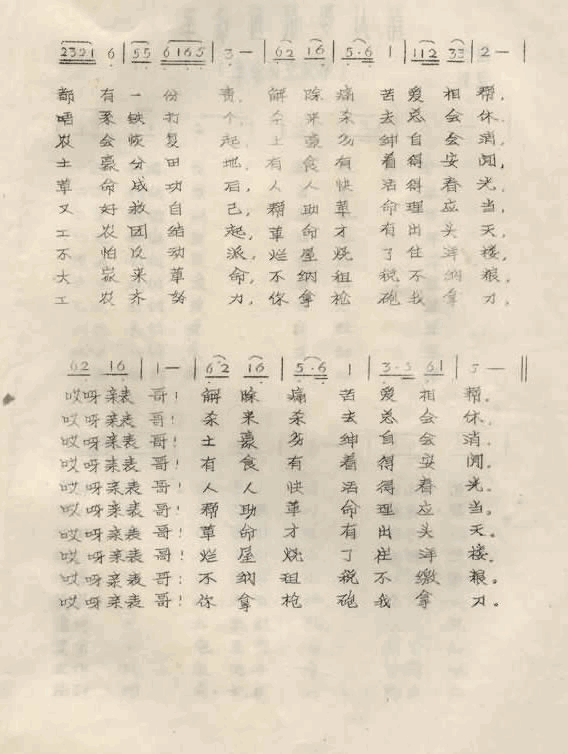 2321 6 | 55 6165 | 3 — | 62 16 | 5·6 1 | 112 33 | 2 — |
都有一份责,解除痛苦爱相帮,
唔系铁打个,杀来杀去总会休,
农会恢复起,土豪劣绅自会消,
土豪分田地,有食有着得安闲,
革命成功后,人人快活得春光,
又好救自己,帮助革命理应当,
工农团结起,革命才有出头天,
不怕反动派,烂屋烧了住洋楼,
大家来革命,不纳租税不纳粮,
工农齐努力,你拿枪砲我拿刀,
62 16 | 1 — | 62 16 | 5·6 1 | 3·5 61 | 5 — ‖
哎呀亲表哥!解除痛苦爱相帮。
哎呀亲表哥!杀来杀去总会休。
哎呀亲表哥!土豪劣绅自会消。
哎呀亲表哥!有食有着得安闲。
哎呀亲表哥!人人快活得春光。
哎呀亲表哥!帮助革命理应当。
哎呀亲表哥!革命才有出头天。
哎呀亲表哥!烂屋烧了住洋楼。
哎呀亲表哥!不纳租税不缴粮。
哎呀亲表哥!你拿枪砲我拿刀。